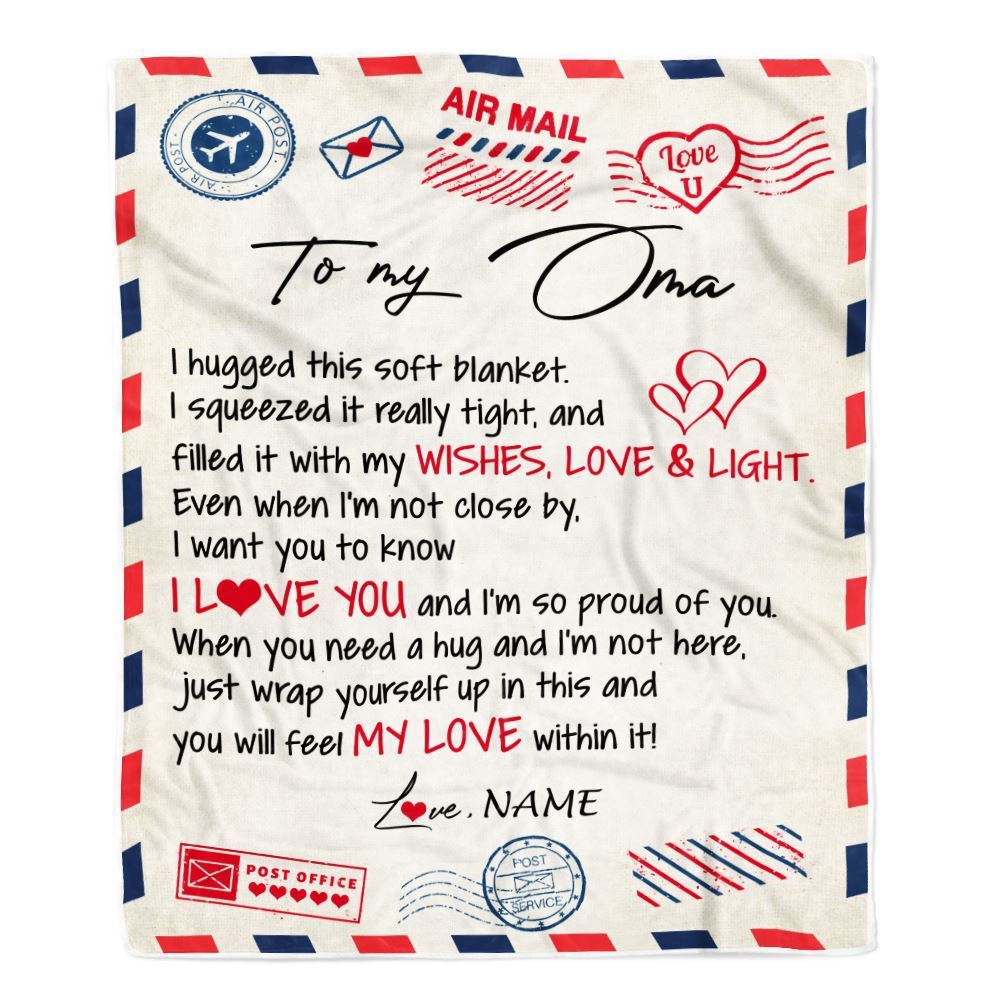 AIR POST
AIR POST
AIR MAIL
Love
U
To my Oma
I hugged this soft blanket.
I squeezed it really tight, and
filled it with my WISHES, LOVE & LIGHT.
Even when I'm not close by,
I want you to know
I L❤VE YOU and I'm so proud of you.
When you need a hug and I'm not here,
just wrap yourself up in this and
you will feel MY LOVE within it!
L❤ve, NAME
POST OFFICE
POST
SERVICE